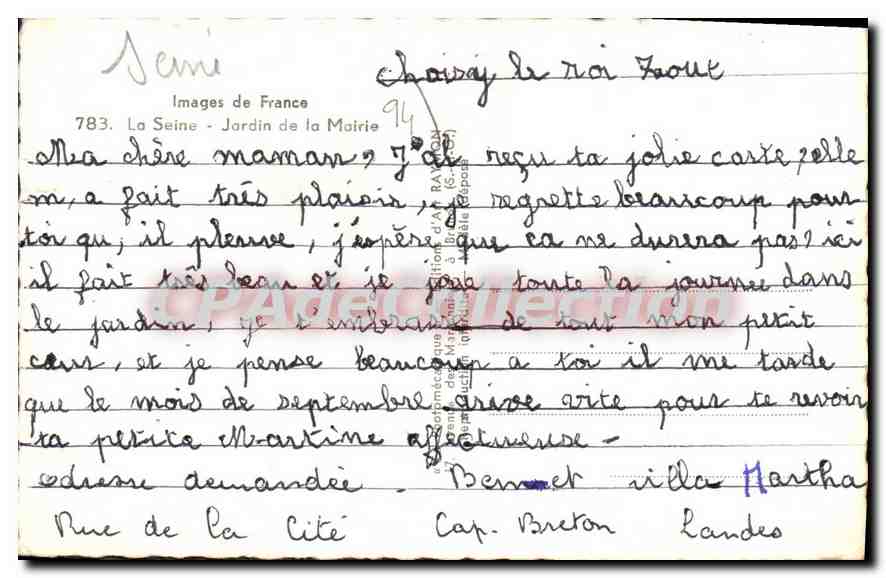 Seine
Choisy le roi 7 aout
Images de France
94
783. La Seine - Jardin de la Mairie
Ma chère maman, J'ai reçu ta jolie carte, elle
m, a fait très plaisir, je regrette beaucoup pour
toi qu, il pleuve, j'espère que ca ne durera pas, ici
il fait très beau et je joue toute la journée dans
le jardin, je t'embrasse de tout mon petit
cœur, et je pense beaucoup a toi il me tarde
que le mois de septembre arive vite pour te revoir
ta petite Martine affectueuse -
adresse demandée. Bennet villa Martha
Rue de la Cité Cap. Breton Landes
CPAdeCollection